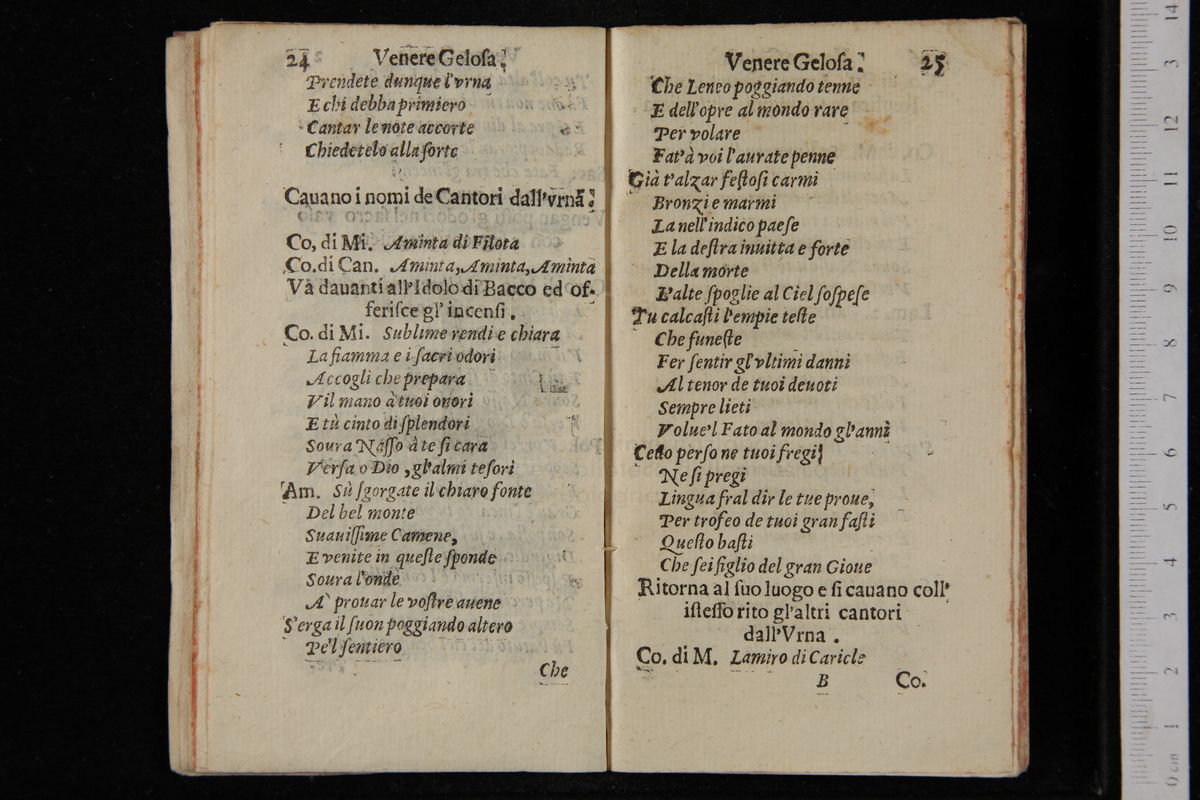 24 Venere Geloſa.
Prendete dunque l'vrna
E chi debba primiero
Cantar le note accorte
Chiedetelo alla ſorte
Cauano i nomi de Cantori dall'vrna.
Co, di Mi. Aminta di Filota
Co. di Can. Aminta, Aminta, Aminta
Và dauanti all'Idolo di Bacco ed of-
feriſce gl' incenſi.
Co. di Mi. Sublime rendi e chiara
La fiamma e i ſacri odori
Accogli che prepara
Vil mano à tuoi onori
E tù cinto di ſplendori
Soura Naſſo à te ſi cara
Verſa o Dio, gl'almi teſori
Am. Sù ſgorgate il chiaro fonte
Del bel monte
Suauiſſime Camene,
E venite in queſte ſponde
Soura l'onde
A' prouar le voſtre auene
S'erga il ſuon poggiando altero
Pe'l ſentiero
Che
Venere Geloſa. 25
Che Leneo poggiando tenne
E dell'opre al mondo rare
Per volare
Fat'à voi l'aurate penne
Già t'alzar feſtoſi carmi
Bronzi e marmi
La nell'indico paeſe
E la deſtra inuitta e forte
Della morte
L'alte ſpoglie al Ciel ſoſpeſe
Tu calcaſti l'empie teſte
Che funeſte
Fer ſentir gl'vltimi danni
Al tenor de tuoi deuoti
Sempre lieti
Volue'l Fato al mondo gl'anni
Ceſto perſo ne tuoi fregi
Ne ſi pregi
Lingua fral dir le tue proue,
Per trofeo de tuoi gran faſti
Queſto baſti
Che ſei figlio del gran Gioue
Ritorna al ſuo luogo e ſi cauano coll'
iſteſſo rito gl'altri cantori
dall'Vrna.
Co. di M. Lamiro di Caricle
B Co.